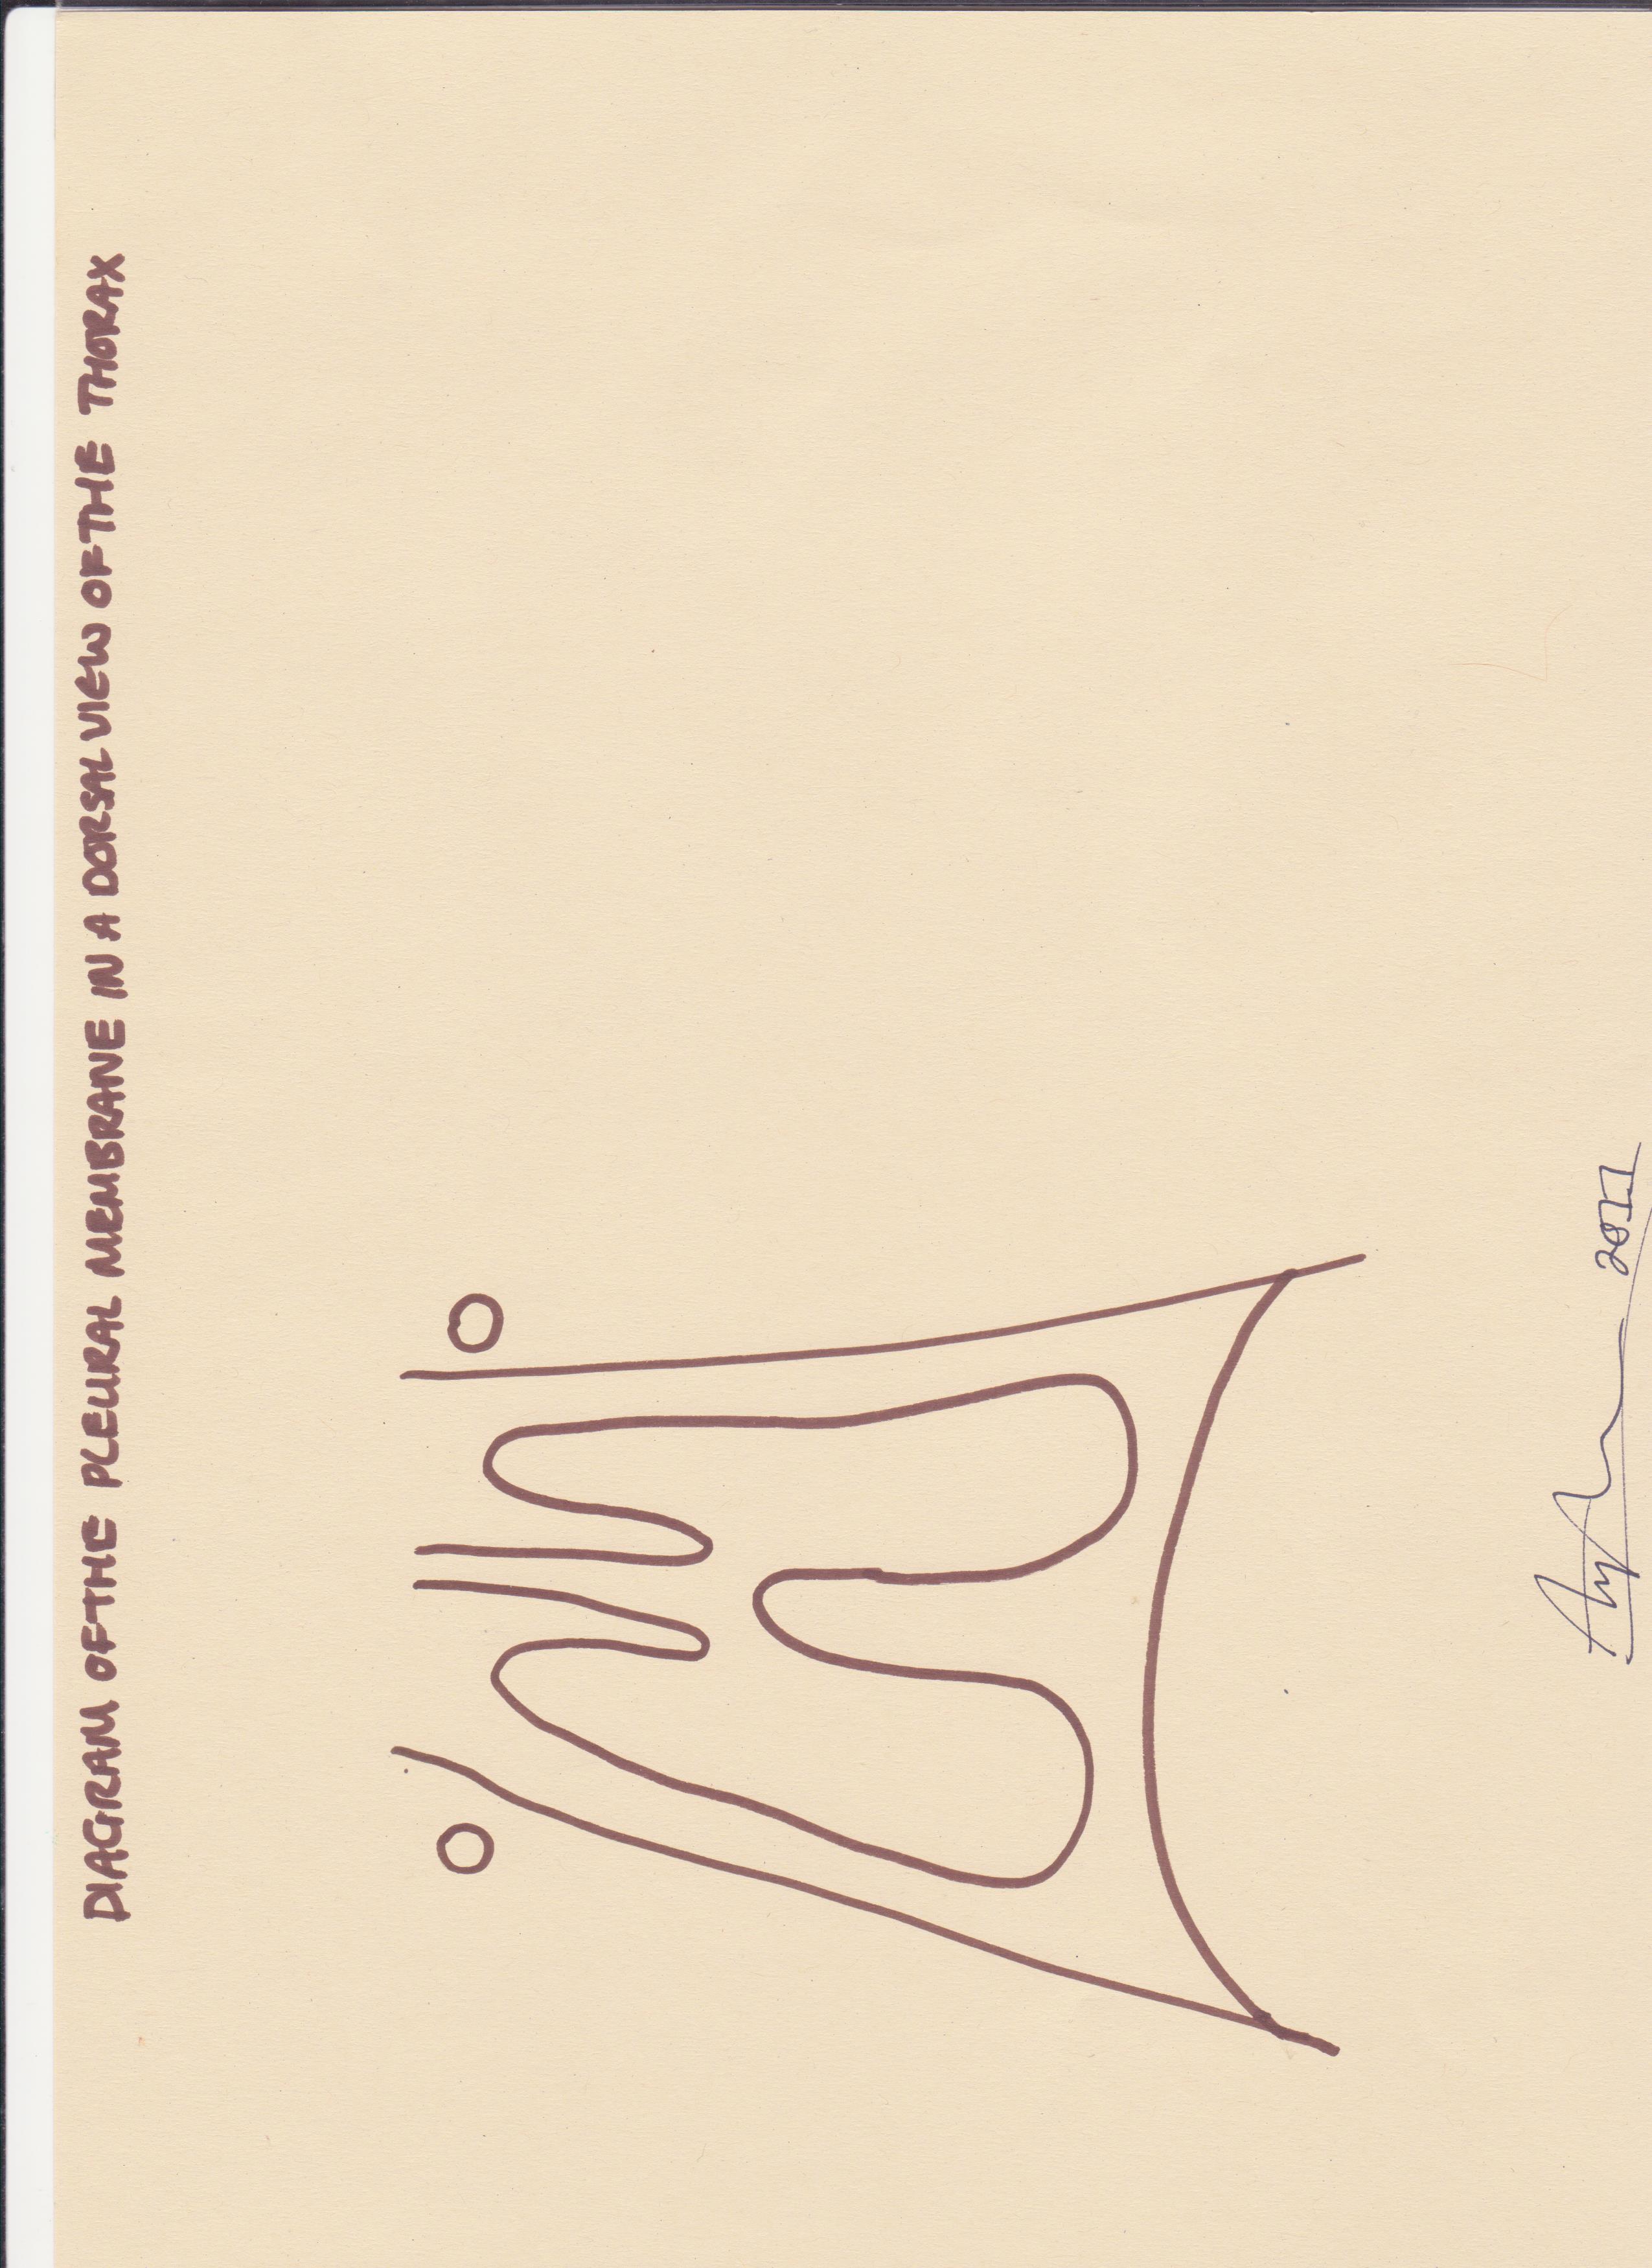 DIAGRAM OF THE PLEURAL MEMBRANE IN A DORSAL VIEW OF THE THORAX